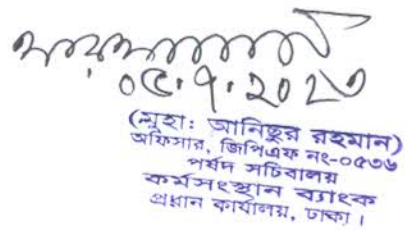 ০৫.৭.২০২৩
(মুহা: আনিছুর রহমান)
অফিসার, জিপিএফ নং-০৫৩৬
পর্ষদ সচিবালয়
কর্মসংস্থান ব্যাংক
প্রধান কার্যালয়, ঢাকা।